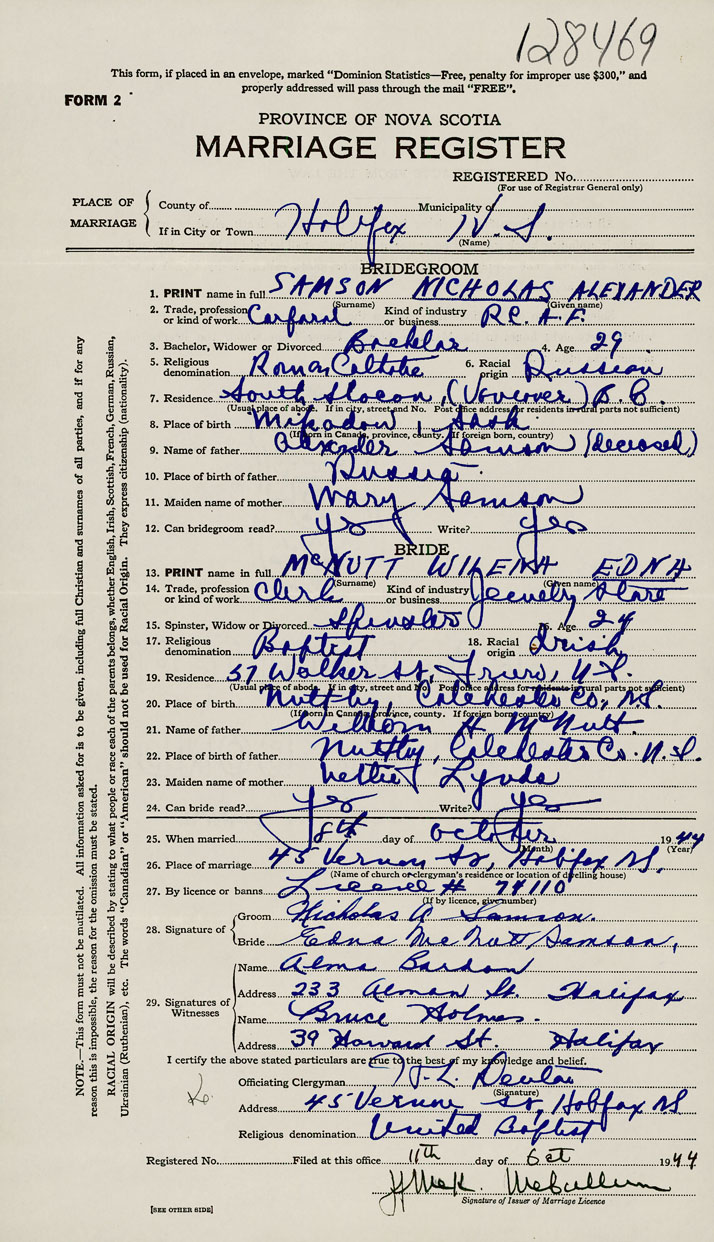 128469
This form, if placed in an envelope, marked "Dominion Statistics—Free, penalty for improper use $300," and
properly addressed will pass through the mail "FREE".
FORM 2
PROVINCE OF NOVA SCOTIA
MARRIAGE REGISTER
REGISTERED No.
(For use of Registrar General only)
PLACE OF MARRIAGE
County of Municipality of
If in City or Town Halifax N.S.
(Name)
BRIDEGROOM
1. PRINT name in full SAMSON NICHOLAS ALEXANDER
(Surname) (Given name)
2. Trade, profession or kind of work Corporal Kind of industry or business R.C.A.F.
3. Bachelor, Widower or Divorced Bachelor 4. Age 29
5. Religious denomination Roman 6. Racial origin Russian
7. Residence South Slocan, B.C.
(Usual place of abode. If in city, street and No. Post office address for residents in rural parts not sufficient)
8. Place of birth Mikado, Sask
(If born in Canada, province, county. If foreign born, country)
9. Name of father Samson (deceased)
10. Place of birth of father Russia
11. Maiden name of mother Mary Samson
12. Can bridegroom read? yes Write? yes
BRIDE
13. PRINT name in full McNUTT WILENA EDNA
(Surname) (Given name)
14. Trade, profession or kind of work Clerk Kind of industry or business Jewelry Store
15. Spinster, Widow or Divorced Spinster 16. Age 24
17. Religious denomination Baptist 18. Racial origin Irish
19. Residence 57 Walker St, Truro, N.S.
(Usual place of abode. If in city, street and No. Post office address for residents in rural parts not sufficient)
20. Place of birth Nuttby, Colchester Co, N.S.
(If born in Canada, province, county. If foreign born, country)
21. Name of father William H McNutt.
22. Place of birth of father Nuttby, Colchester Co. N.S.
23. Maiden name of mother Nettie Lynds
24. Can bride read? yes Write? yes
25. When married 8th day of October 1944
(Month) (Year)
26. Place of marriage 45 Vernon St, Halifax N.S.
(Name of church or clergyman's residence or location of dwelling house)
27. By licence or banns # 74110
(If by licence, give number)
28. Signature of
Groom Nicholas A Samson.
Bride Edna McNutt Samson,
29. Signatures of Witnesses
Name Alma
Address 233 St. Halifax
Name Bruce Holmes.
Address 39 Howard St. Halifax
I certify the above stated particulars are true to the best of my knowledge and belief.
Officiating Clergyman
(Signature)
Address 45 Vernon St, Halifax NS
Religious denomination United Baptist
Registered No. Filed at this office 11th day of Oct 1944
McCallum
Signature of Issuer of Marriage Licence
[SEE OTHER SIDE]
NOTE.—This form must not be mutilated. All information asked for is to be given, including full Christian and surnames of all parties, and if for any
reason this is impossible, the reason for the omission must be stated.
RACIAL ORIGIN will be described by stating to what people or race each of the parents belongs, whether English, Irish, Scottish, French, German, Russian,
Ukrainian (Ruthenian), etc. The words "Canadian" or "American" should not be used for Racial Origin. They express citizenship (nationality).